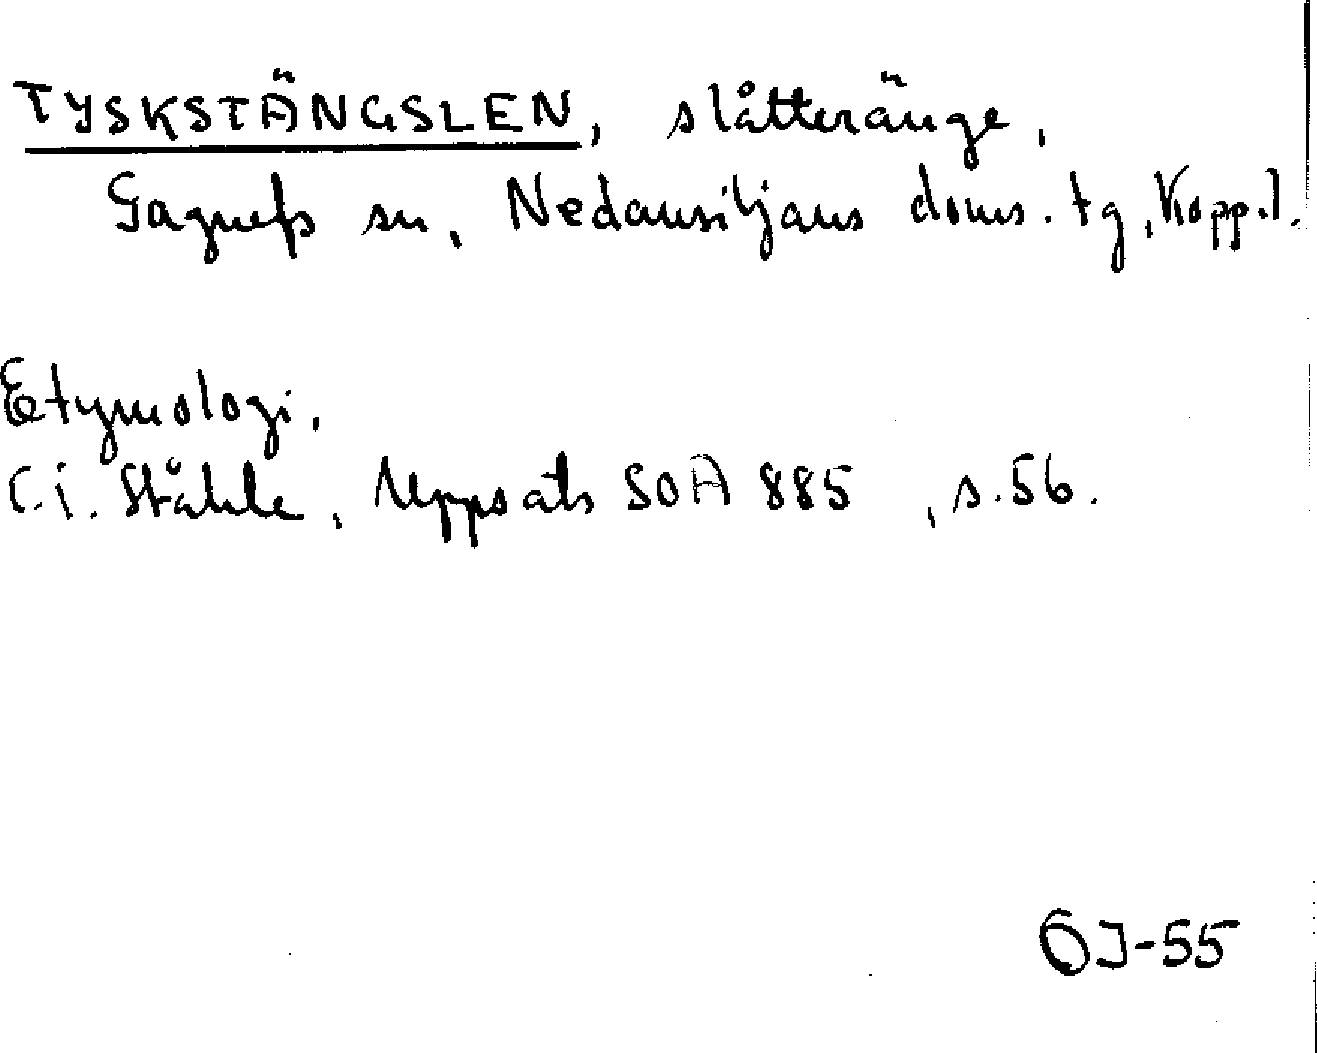 TYSKSTÄNGSLEN, slåtteränge,
Gagnefs sn, Nedansiljans doms. tg, Kopp.l.
Etymologi.
C.I. Ståhle, Uppsats SOA 885, s. 56.
ÖJ-55